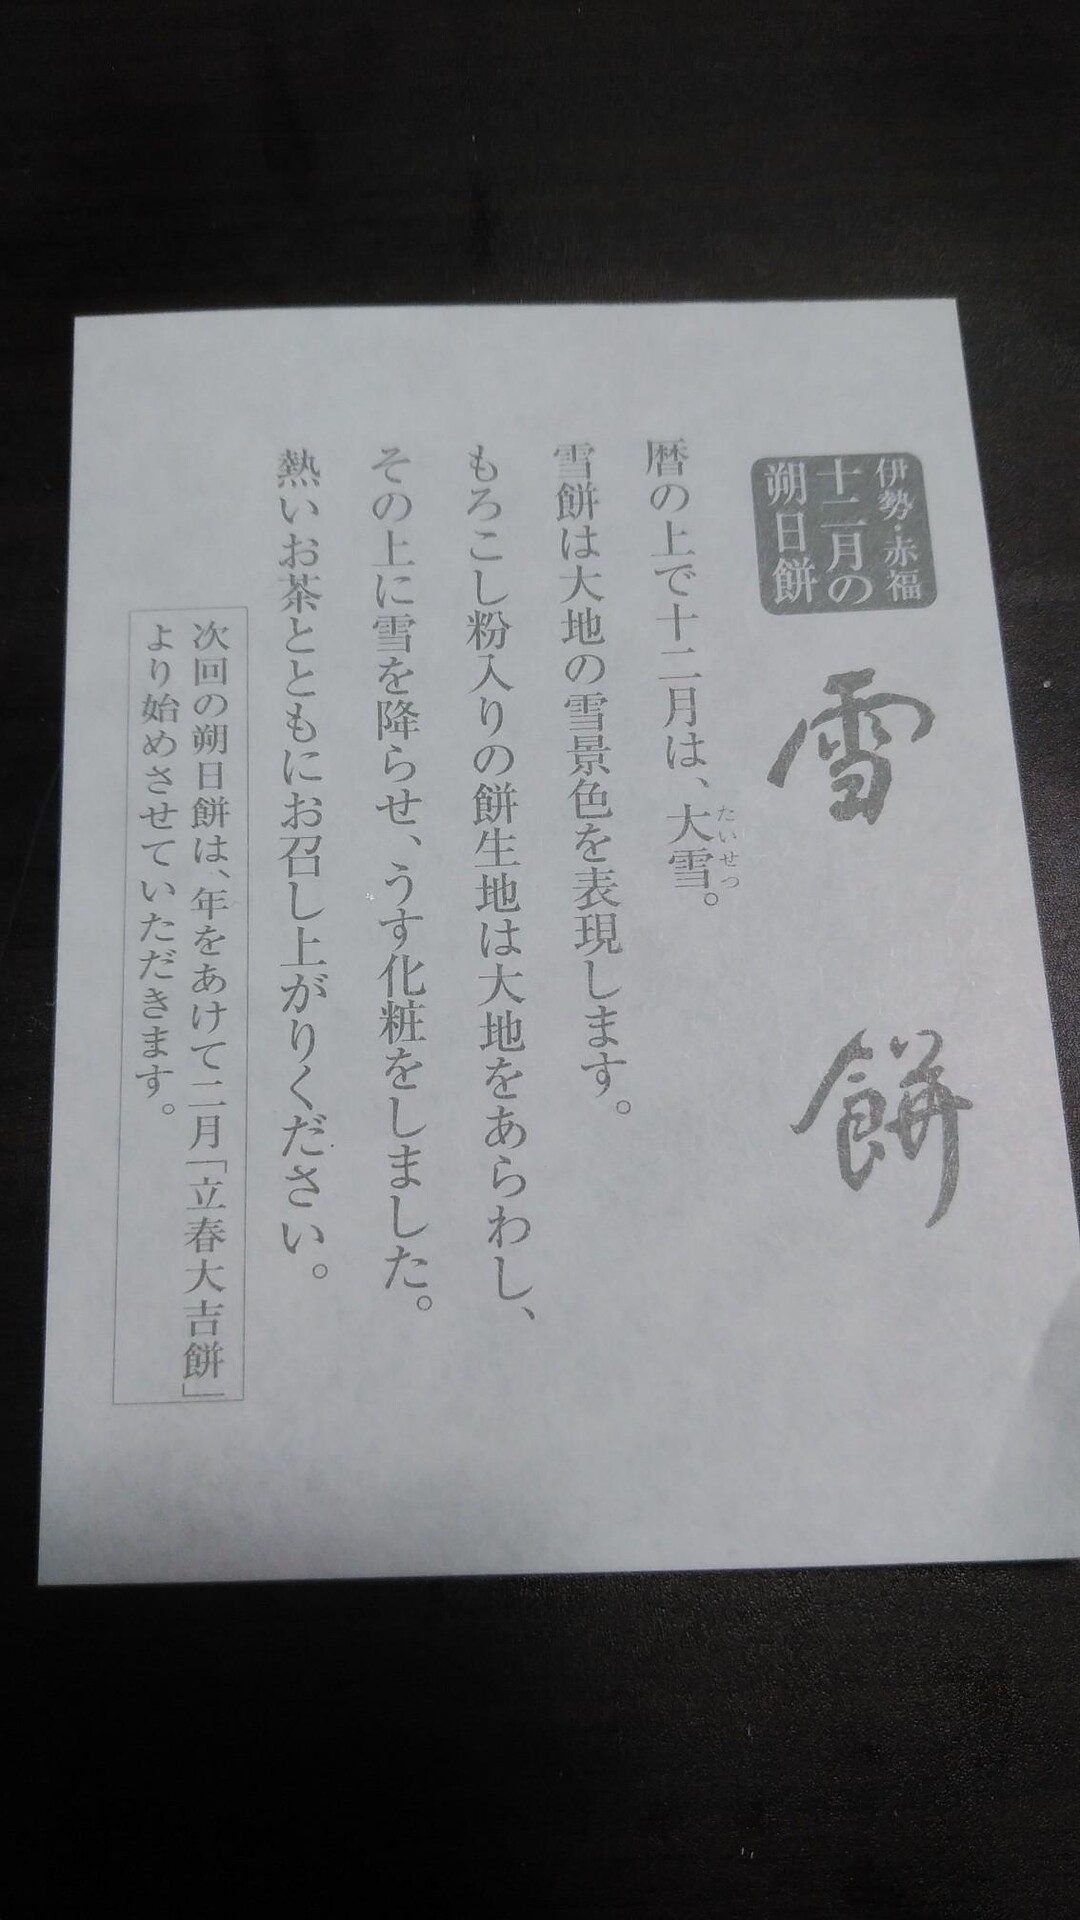 伊勢・赤福
十二月の
朔日餅
雪餅
暦の上で十二月は、大雪。
たいせつ
雪餅は大地の雪景色を表現します。
もろこし粉入りの餅生地は大地をあらわし、
その上に雪を降らせ、うす化粧をしました。
熱いお茶とともにお召し上がりください。
次回の朔日餅は、年をあけて二月「立春大吉餅」
より始めさせていただきます。